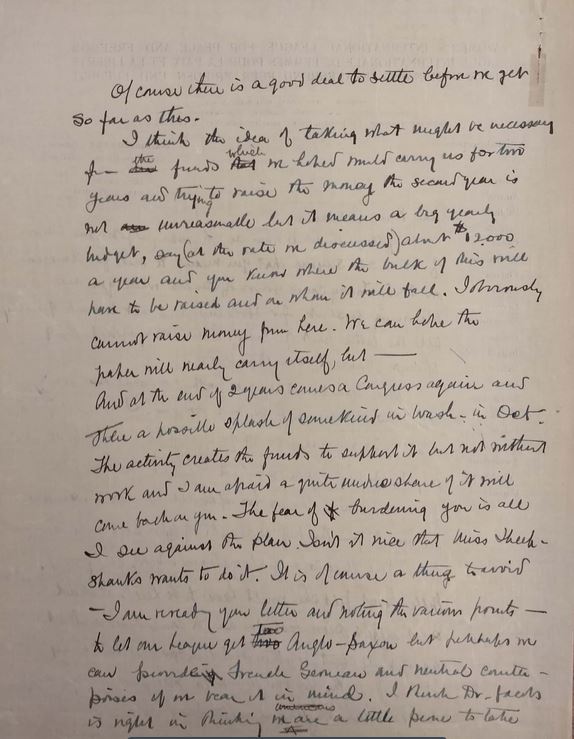 Of course there is a good deal to settle before we get
so far as this.
I think the idea of taking what might be necessary
for the funds which we hoped would carry us for two
years and trying to raise the money the second year is
not unreasonable but it means a big yearly
budget, say (at the rate we discussed) about $12.000
a year and you know where the bulk of this will
have to be raised and on whom it will fall. I obviously
cannot raise money from here. We can hope the
paper will nearly carry itself, but —
And at the end of 2 years comes a Congress again and
then a possible splash of some kind in Wash- in Oct.
The activity creates the funds to support it but not without
work and I am afraid a quite undue share of it will
come back on you - The fear of burdening you is all
I see against the plan. Isn't it nice that Miss Sheep-
shanks wants to do it. It is of course a thing to avoid
— I am rereading your letter and noting the various points —
to let our League get too Anglo-Saxon but perhaps we
can provide French German and neutral counter-
poises if we bear it in mind. I think Dr. Jacobs
is right in thinking we Americans are a little prone to take